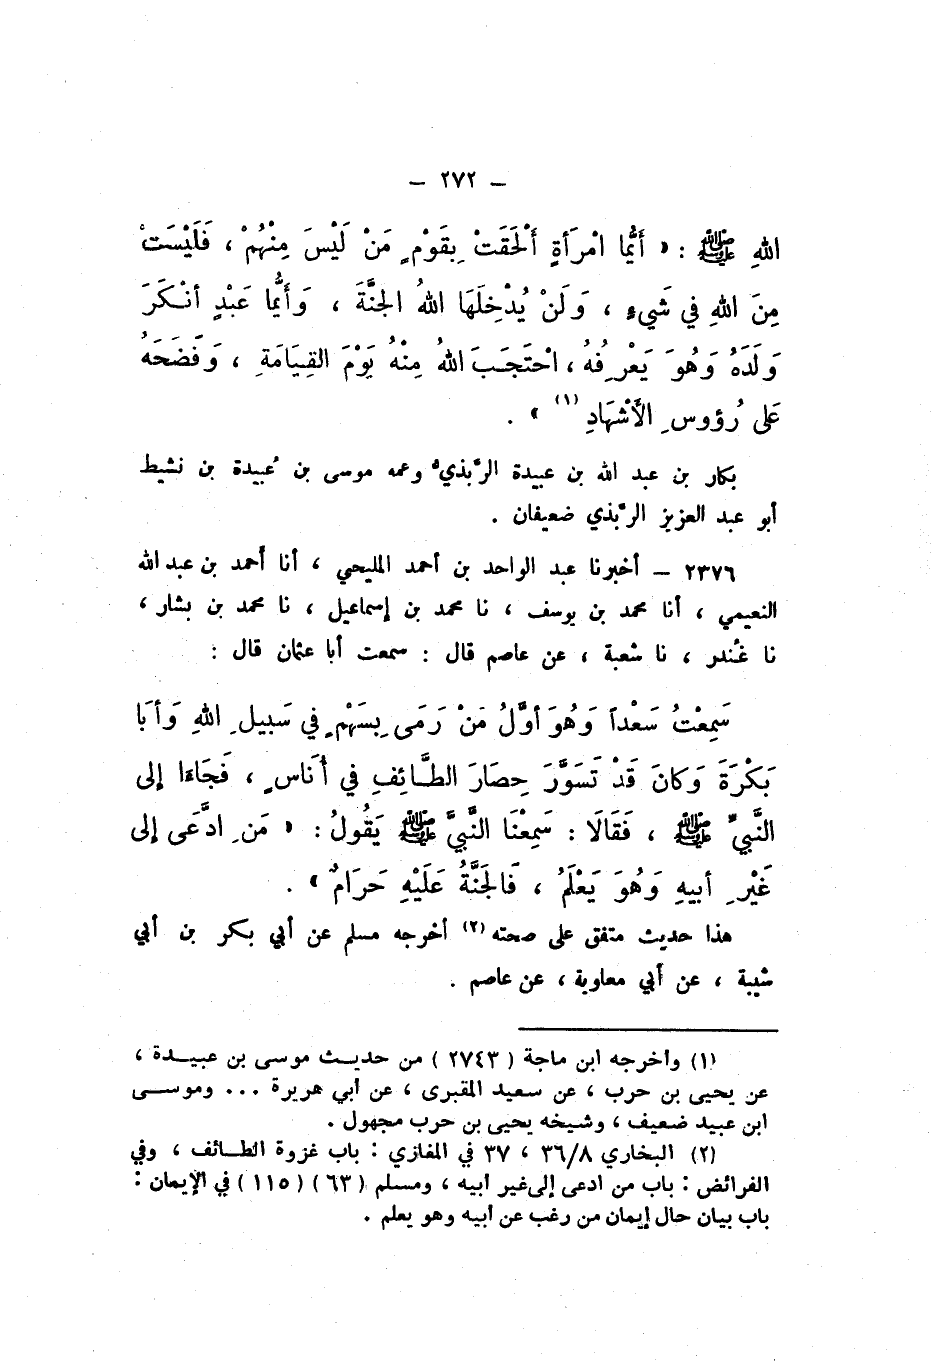 – ٢٧٢ –
اللهِ ﷺ : « أَيُّمَا امْرَأَةٍ أَلْحَقَتْ بِقَوْمٍ مَنْ لَيْسَ مِنْهُمْ ، فَلَيْسَتْ
مِنَ اللهِ فِي شَيْءٍ ، وَلَنْ يُدْخِلَهَا اللهُ الجَنَّةَ ، وَأَيُّمَا عَبْدٍ أَنْكَرَ
وَلَدَهُ وَهُوَ يَعْرِفُهُ ، احْتَجَبَ اللهُ مِنْهُ يَوْمَ القِيَامَةِ ، وَفَضَحَهُ
عَلَى رُؤوسِ الأَشْهَادِ (١) » .
بكار بن عبد الله بن عبيدة الرَّبذيُّ وعمه موسى بن عُبيدة بن نشيط
أبو عبد العزيز الرَّبذي ضعيفان .
٢٣٧٦ – أخبرنا عبد الواحد بن أحمد المليحي ، أنا أحمد بن عبد الله
النعيمي ، أنا محمد بن يوسف ، نا محمد بن إسماعيل ، نا محمد بن بشار ،
نا غُندر ، نا شعبة ، عن عاصم قال : سمعت أبا عثمان قال :
سَمِعْتُ سَعْداً وَهُوَ أَوَّلُ مَنْ رَمَى بِسَهْمٍ فِي سَبِيلِ اللهِ وَأَبَا
بَكْرَةَ وَكَانَ قَدْ تَسَوَّرَ حِصَارَ الطَّائِفِ فِي أُنَاسٍ ، فَجَاءَا إِلى
النَّبِيِّ ﷺ ، فَقَالَا : سَمِعْنَا النَّبِيَّ ﷺ يَقُولُ : « مَنِ ادَّعَى إِلى
غَيْرِ أَبِيهِ وَهُوَ يَعْلَمُ ، فَالجَنَّةُ عَلَيْهِ حَرَامٌ » .
هذا حديث متفق على صحته (٢) أخرجه مسلم عن أبي بكر بن أبي
شيبة ، عن أبي معاوية ، عن عاصم .
(١) وأخرجه ابن ماجة ( ٢٧٤٣ ) من حديث موسى بن عبيدة ،
عن يحيى بن حرب ، عن سعيد المقبرى ، عن أبي هريرة ... وموسى
ابن عبيد ضعيف ، وشيخه يحيى بن حرب مجهول .
(٢) البخاري ٣٦/٨ ، ٣٧ في المغازي : باب غزوة الطائف ، وفي
الفرائض : باب من ادعى إلى غير أبيه ، ومسلم ( ٦٣ ) ( ١١٥ ) في الإيمان :
باب بيان حال إيمان من رغب عن أبيه وهو يعلم .